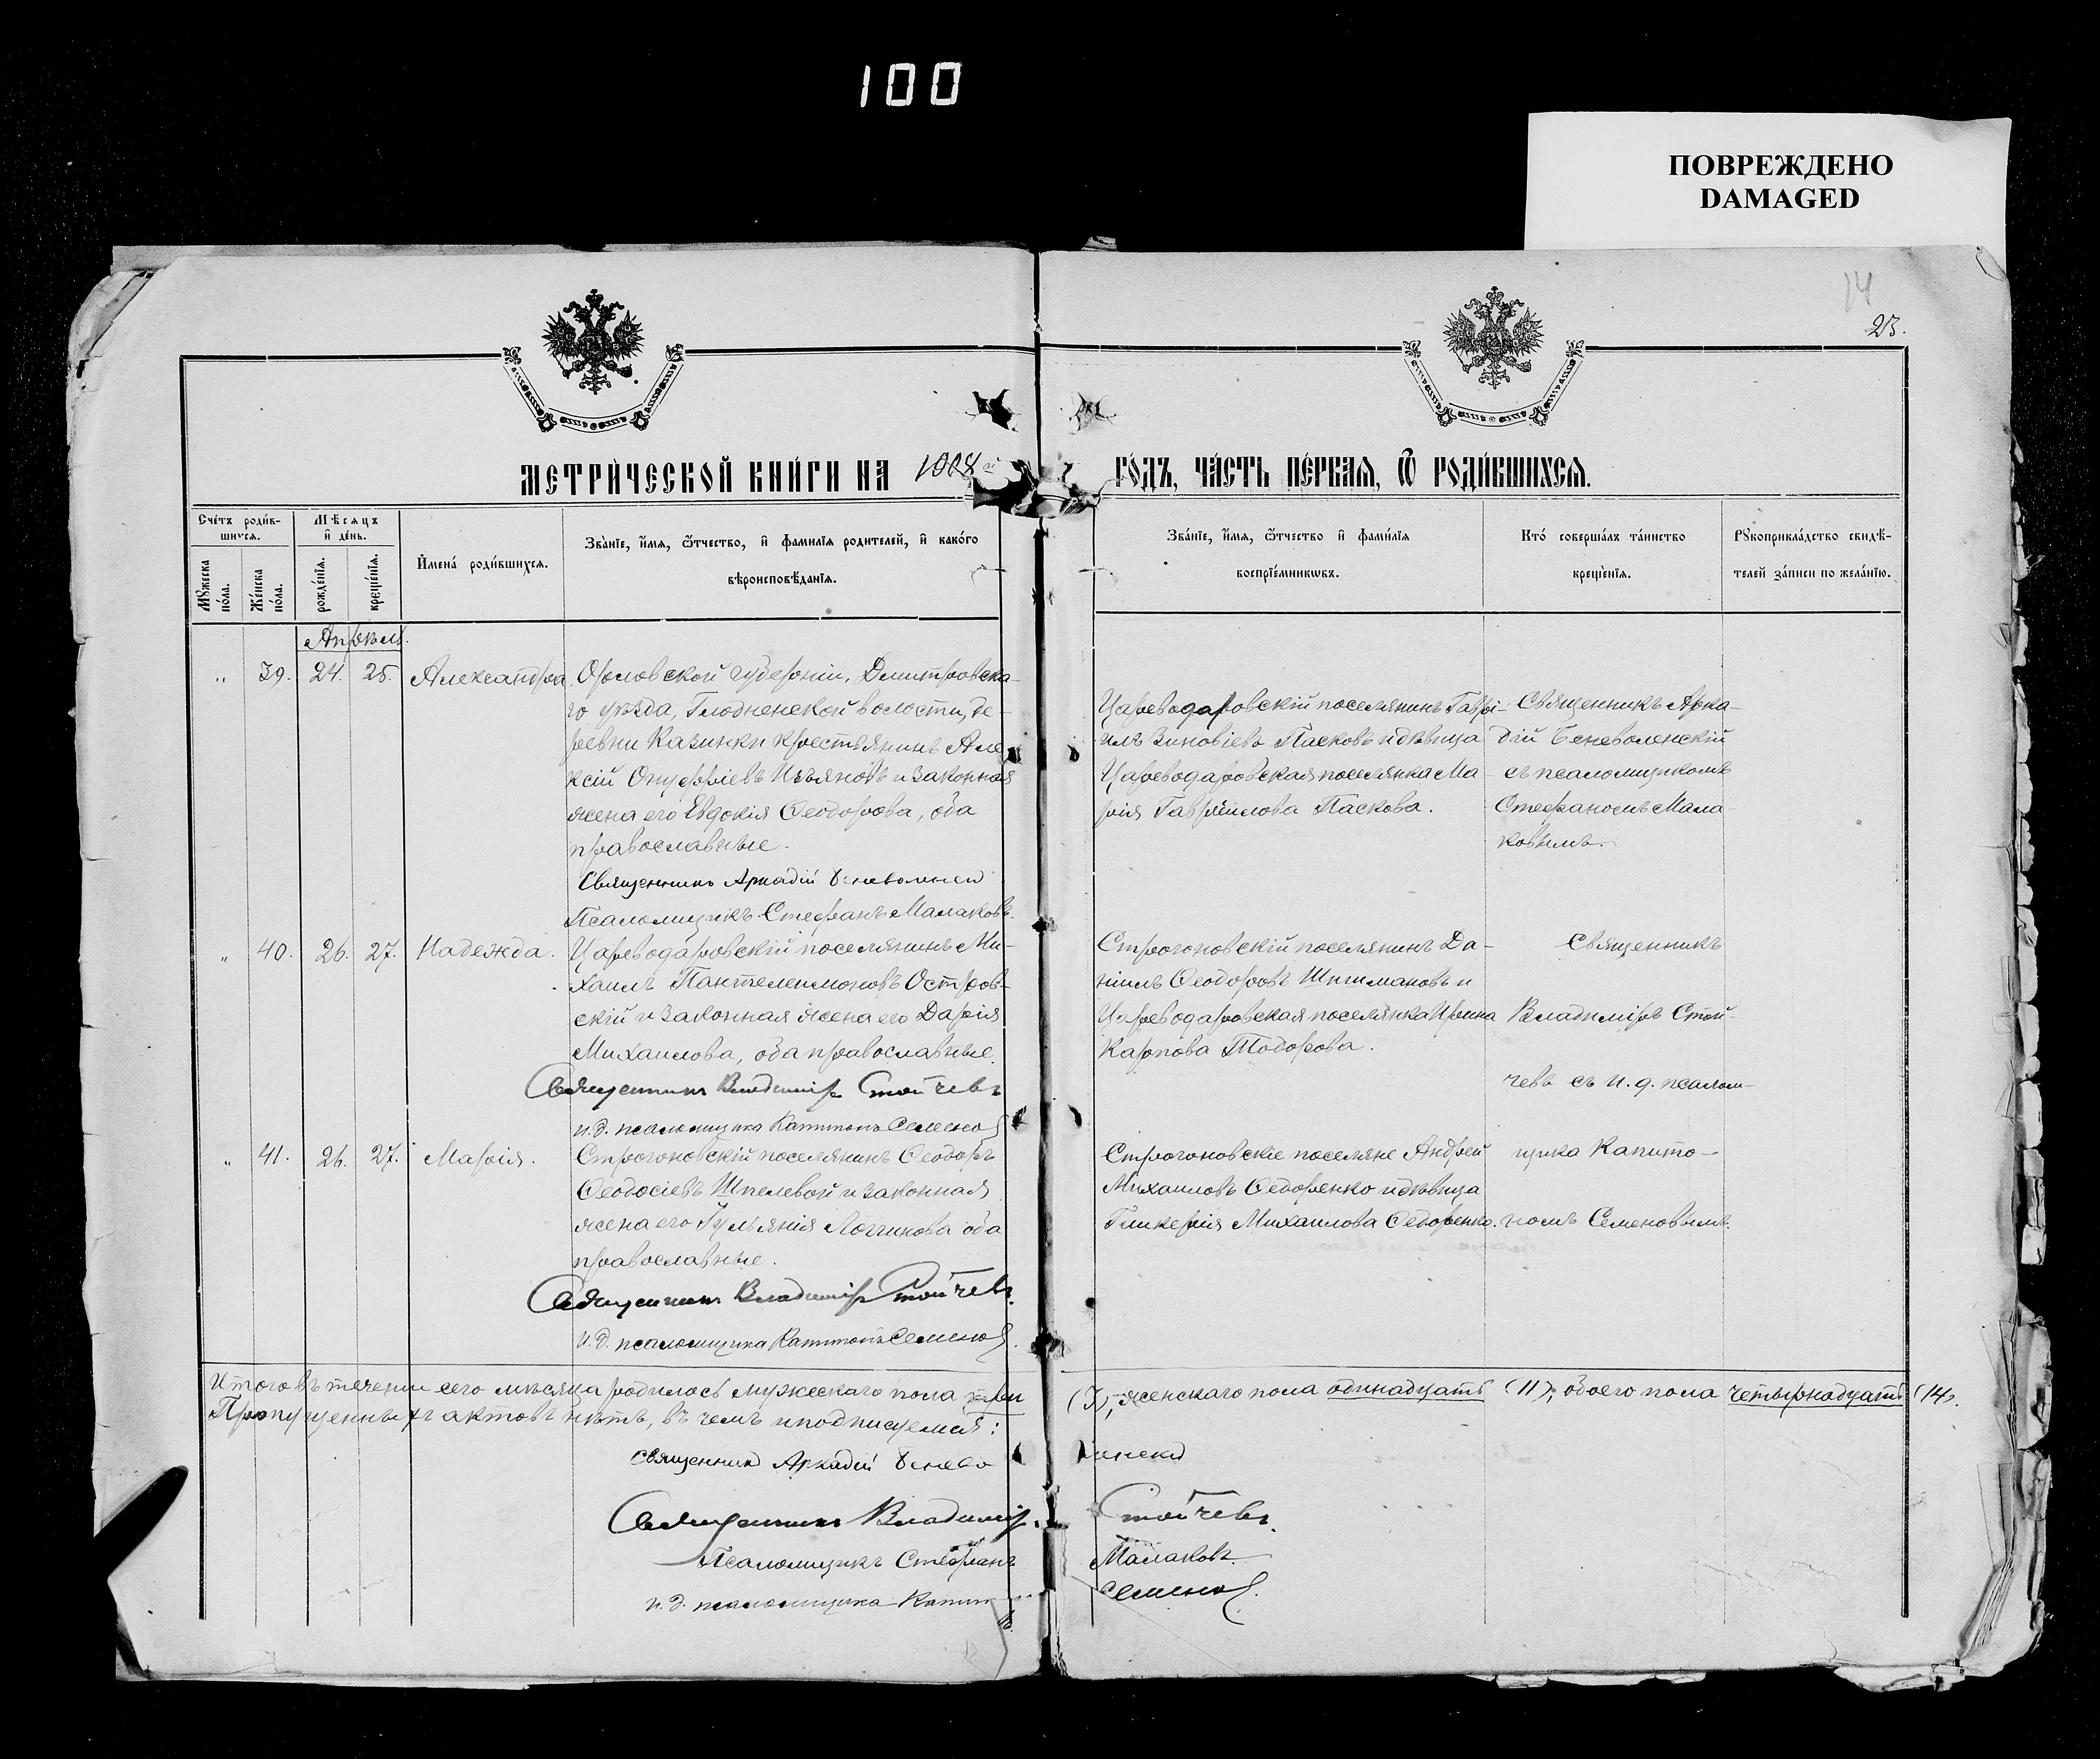 100
ПОВРЕЖДЕНО
DAMAGED
14
23.
МЕТРИЧЕСКОЙ КНИГИ НА 1908 й
ГОДЪ, ЧАСТЬ ПЕРВАЯ, Ѿ РОДИВШИХСЯ.
Счетъ родив-
шихся.
Мѣсяцъ
и день.
Имена родившихся.
Званїе, имя, ѿтчество, и фамилїя родителей, и какого
вѣроисповѣданїя.
Мужеска пола.
Женска пола.
рожденїя.
крещенїя.
Званїе, имя, ѿтчество и фамилїя
воспрїемниковъ.
Кто совершалъ таинство
крещенїя.
Рукоприкладство свидѣ-
телей записи по желанїю.
Апрѣль.
„ 39. 24. 25. Александра
Орловской губерніи, Дмитровска-
го уѣзда, Глодненской волости, де-
ревни Казинки крестьянинъ Але-
ксій Онуфріевъ Изъяновъ и законная
жена его Евдокія Ѳеодорова, оба
православные.
Священникъ Аркадій
Псаломщикъ Стефанъ Малаковъ.
Цареводаровскій поселянинъ Гаврі-
илъ Зиновіевъ Пасковъ и дѣвица
Цареводаровская поселянка Ма-
рія Гавріилова Паскова.
Священникъ Арка-
дій Беневоленскій
съ псаломщикомъ
Стефаномъ Мала-
ковымъ.
„ 40. 26. 27. Надежда.
Цареводаровскій поселянинъ Ми-
хаилъ Пантелеимоновъ Остров-
скій и законная жена его Дарія
Михаилова, оба православные.
Священникъ Владиміръ Стойчевъ
и. д. псаломщика Капитонъ Семенов
Строгоновскій поселянинъ Да-
ніилъ Ѳеодоровъ Шишмановъ и
Цареводаровская поселянка Ирина
Карпова Тодорова.
Священникъ
Владиміръ Стой-
чевъ съ и. д. псалом-
щика Капито-
номъ Семеновымъ.
„ 41. 26. 27. Марія.
Строгоновскій поселянинъ Ѳеодоръ
Ѳеодосіевъ Шпелевой и законная
жена его Гульянія Логгинова оба
православные.
Священникъ Владиміръ Стойчевъ.
и. д. псаломщика Капитонъ Семенов.
Строгоновскіе поселяне Андрей
Михаиловъ Ѳедоренко и дѣвица
Гликерія Михаилова Ѳедоренко.
Итого въ теченіи сего мѣсяца родилось мужескаго пола три (3), женскаго пола одинадцать (11), обоего пола четырнадцать (14).
Пропущенныхъ актовъ нѣтъ, въ чемъ и подписуемся:
Священник Аркадій
Священникъ Владиміръ Стойчевъ.
Псаломщикъ Стефанъ Малаковъ
и. д. псаломщика Капитонъ Семенов.